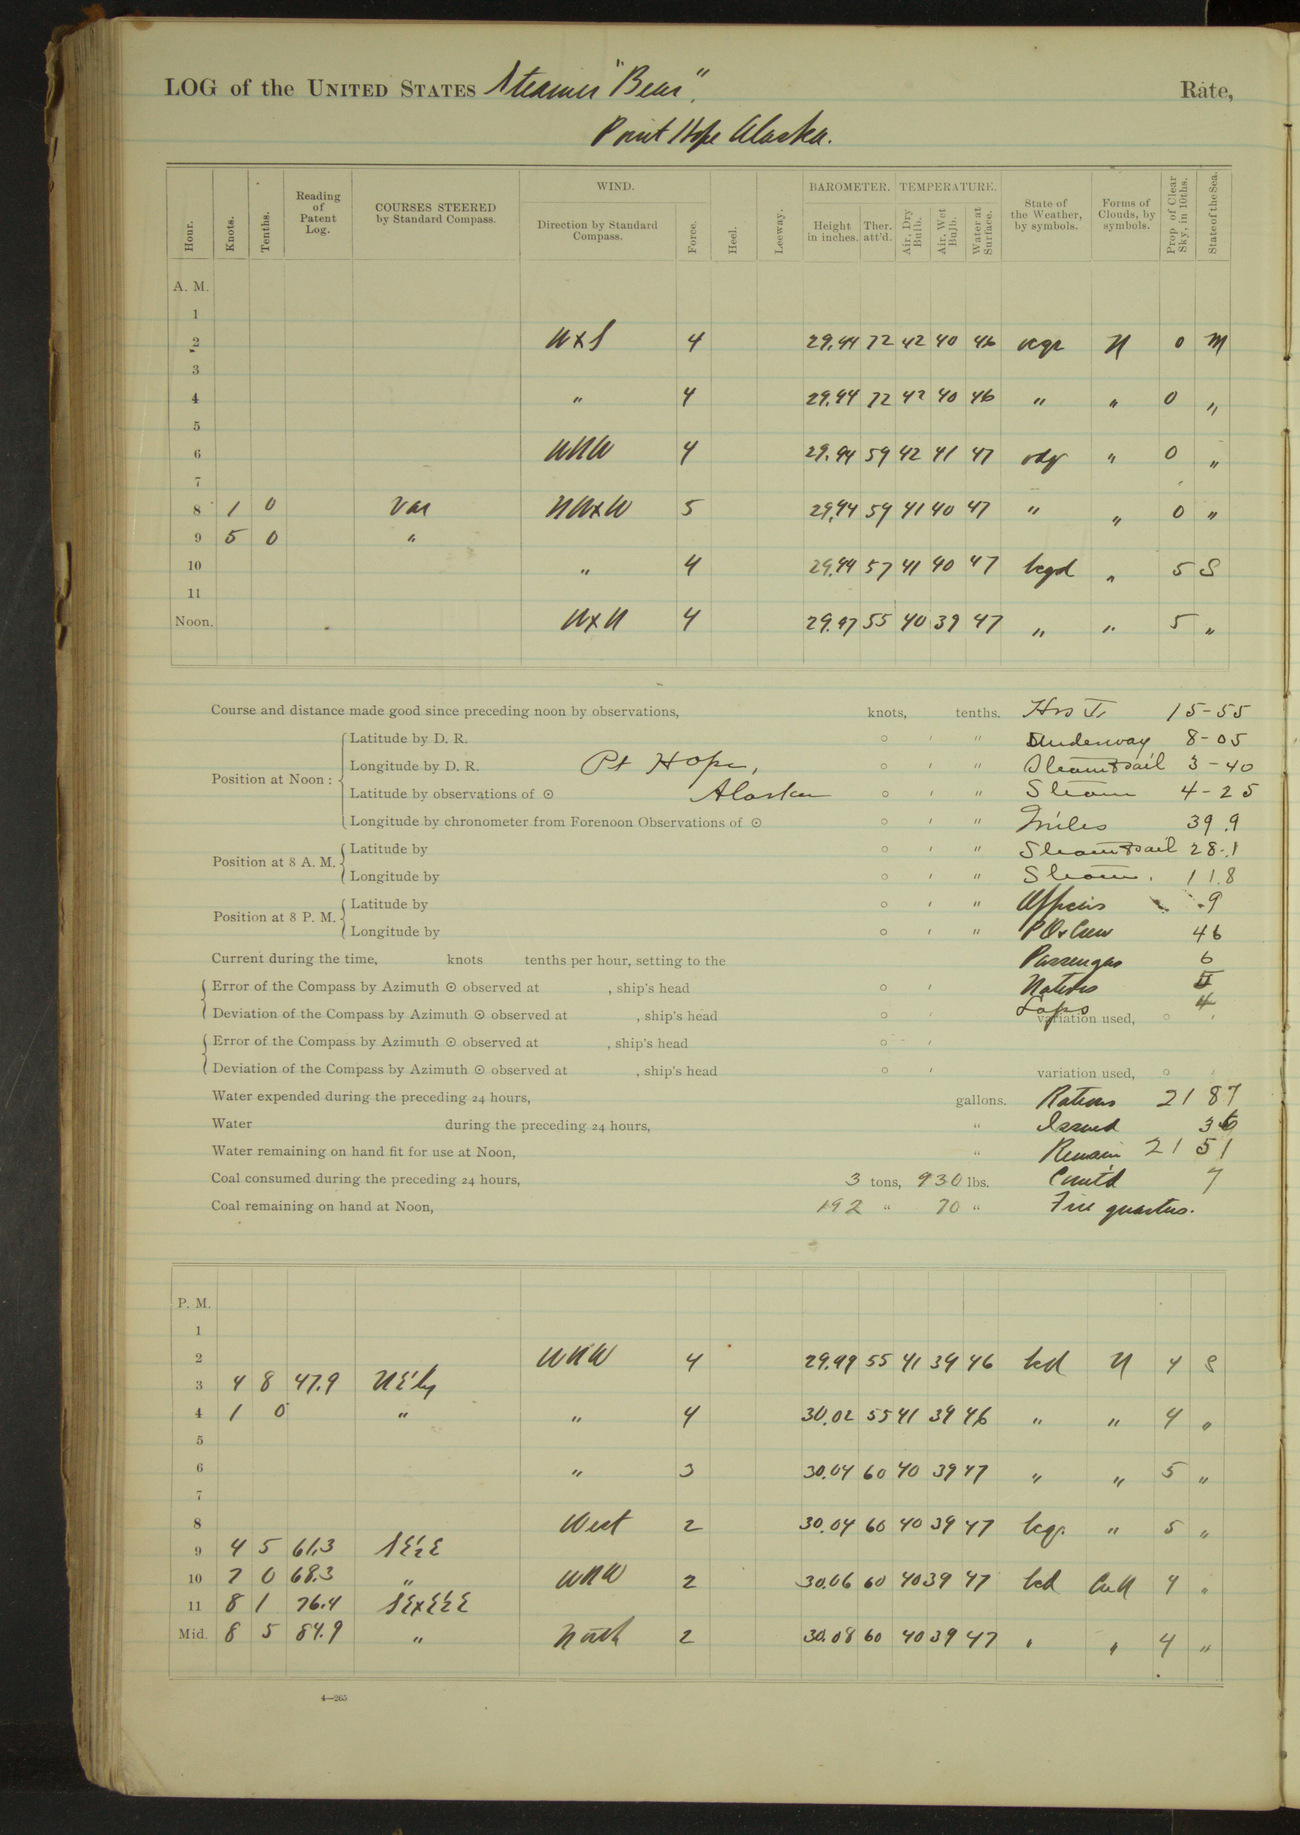 LOG of the UNITED STATES Steamer "Bear". Rate,
Point Hope Alaska.
Hour. Knots. Tenths. Reading of Patent Log. COURSES STEERED by Standard Compass. WIND. Direction by Standard Compass. Force. Heel. Leeway. BAROMETER. Height in inches. Ther. att'd. TEMPERATURE. Air, Dry Bulb. Air, Wet Bulb. Water at Surface. State of the Weather, by symbols. Forms of Clouds, by symbols. Prop. of Clear Sky, in 10ths. State of the Sea.
A. M.
1
2 WxS 4 29.94 72 42 40 46 ocqr N 0 M
3
4 " 4 29.94 72 42 40 46 " " 0 "
5
6 WNW 4 29.94 59 42 41 47 " 0 "
7
8 1 0 Var NWxW 5 29.94 59 41 40 47 " " 0 "
9 5 0 "
10 " 4 29.94 57 41 40 47 bcqd " 5 S
11
Noon. WxN 4 29.97 55 40 39 47 " " 5 "
Course and distance made good since preceding noon by observations, knots, tenths. Hrs 15-55
Position at Noon: Latitude by D. R. ° ′ ″ Underway 8-05
Longitude by D. R. Pt Hope, ° ′ ″ Steam & sail 3-40
Latitude by observations of ☉ Alaska ° ′ ″ Steam 4-25
Longitude by chronometer from Forenoon Observations of ☉ ° ′ ″ Miles 39.9
Position at 8 A. M. Latitude by ° ′ ″ Steam & sail 28.1
Longitude by ° ′ ″ Steam. 11.8
Position at 8 P. M. Latitude by ° ′ ″ Officers 9
Longitude by ° ′ ″ PO & Crew 46
Current during the time, knots tenths per hour, setting to the Passengers 6
Error of the Compass by Azimuth ☉ observed at , ship's head ° ′ Natives
Deviation of the Compass by Azimuth ☉ observed at , ship's head ° ′ Laps 4 variation used, ° ′
Error of the Compass by Azimuth ☉ observed at , ship's head ° ′
Deviation of the Compass by Azimuth ☉ observed at , ship's head ° ′ variation used, ° ′
Water expended during the preceding 24 hours, gallons. Rations 2187
Water during the preceding 24 hours, " Issued 36
Water remaining on hand fit for use at Noon, " Remain 2151
Coal consumed during the preceding 24 hours, 3 tons, 930 lbs. Com't'd 7
Coal remaining on hand at Noon, 192 " 70 " Fire quarters.
P. M.
1
2 WNW 4 29.99 55 41 39 46 bcd N 4 S
3 4 8 47.9 NE'ly
4 1 0 " " 4 30.02 55 41 39 46 " " 4 "
5
6 " 3 30.04 60 40 39 47 " " 5 "
7
8 West 2 30.04 60 40 39 47 bcqr " 5 "
9 4 5 61.3 SE½E
10 7 0 68.3 " WNW 2 30.06 60 40 39 47 bcd CuN 4 "
11 8 1 76.4 SExE½E
Mid. 8 5 84.9 " North 2 30.08 60 40 39 47 " " 4 "
4—265